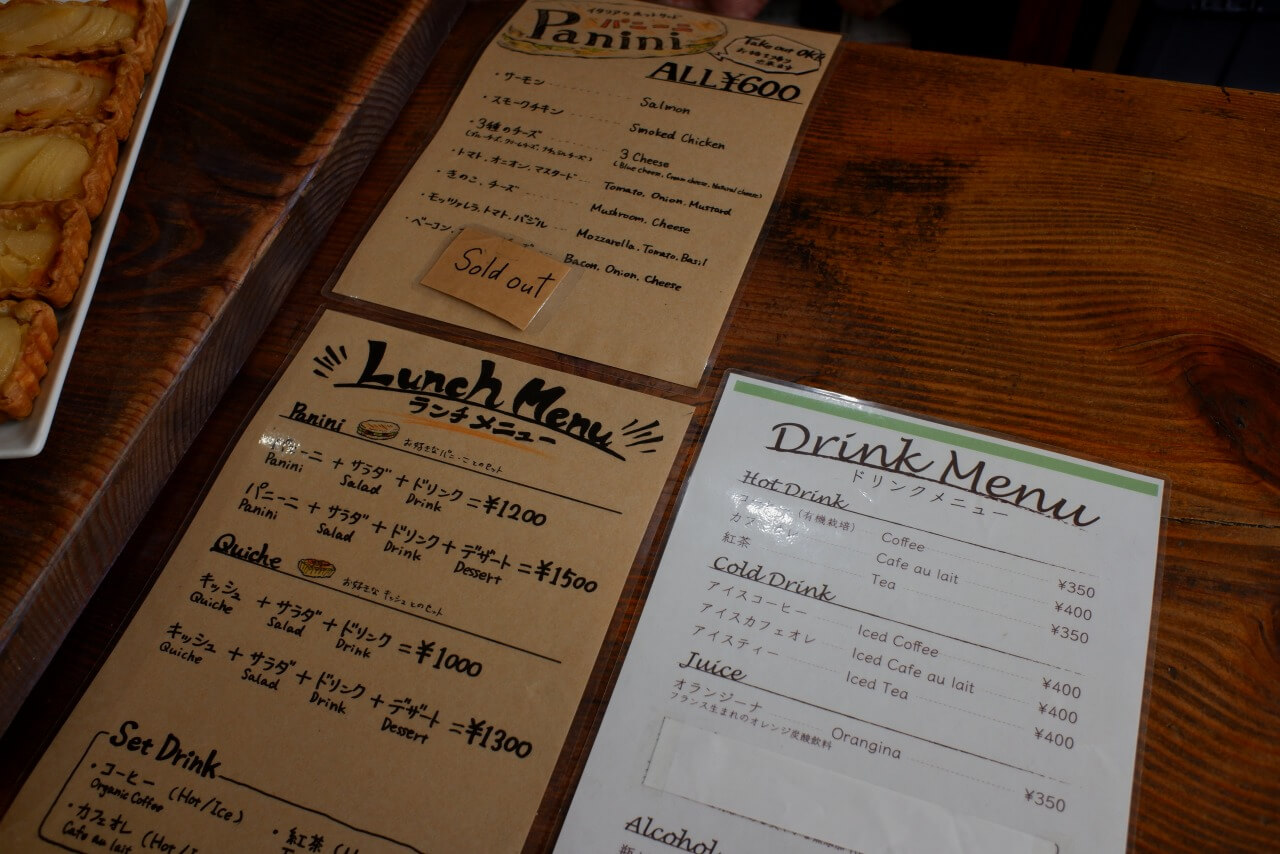 イタリアのホットサンド
パニーニ
Panini
Take out OK!!
お持ち帰り
出来ます
ALL ¥600
・サーモン Salmon
・スモークチキン Smoked Chicken
・3種のチーズ 3 Cheese
(ブルーチーズ、クリームチーズ、ナチュラルチーズ) (Blue cheese, Cream cheese, Natural cheese)
・トマト、オニオン、マスタード Tomato, Onion, Mustard
・きのこ、チーズ Mushroom, Cheese
・モッツァレラ、トマト、バジル Mozzarella, Tomato, Basil
・ベーコン、 Bacon, Onion, Cheese
Sold out
Lunch Menu
ランチメニュー
Panini お好きなパニーニとのセット
ニ + サラダ + ドリンク = ¥1200
Panini Salad Drink
パニーニ + サラダ + ドリンク + デザート = ¥1500
Panini Salad Drink Dessert
Quiche お好きなキッシュとのセット
キッシュ + サラダ + ドリンク = ¥1000
Quiche Salad Drink
キッシュ + サラダ + ドリンク + デザート = ¥1300
Quiche Salad Drink Dessert
Set Drink
・コーヒー (Hot/Ice)
Organic Coffee
・カフェオレ (Hot/
Cafe au lait
・紅茶
Drink Menu
ドリンクメニュー
Hot Drink
(有機栽培) Coffee ¥350
Cafe au lait ¥400
紅茶 Tea ¥350
Cold Drink
アイスコーヒー Iced Coffee ¥400
アイスカフェオレ Iced Cafe au lait ¥400
アイスティー Iced Tea ¥400
Juice
オランジーナ Orangina ¥350
フランス生まれのオレンジ炭酸飲料
Alcohol